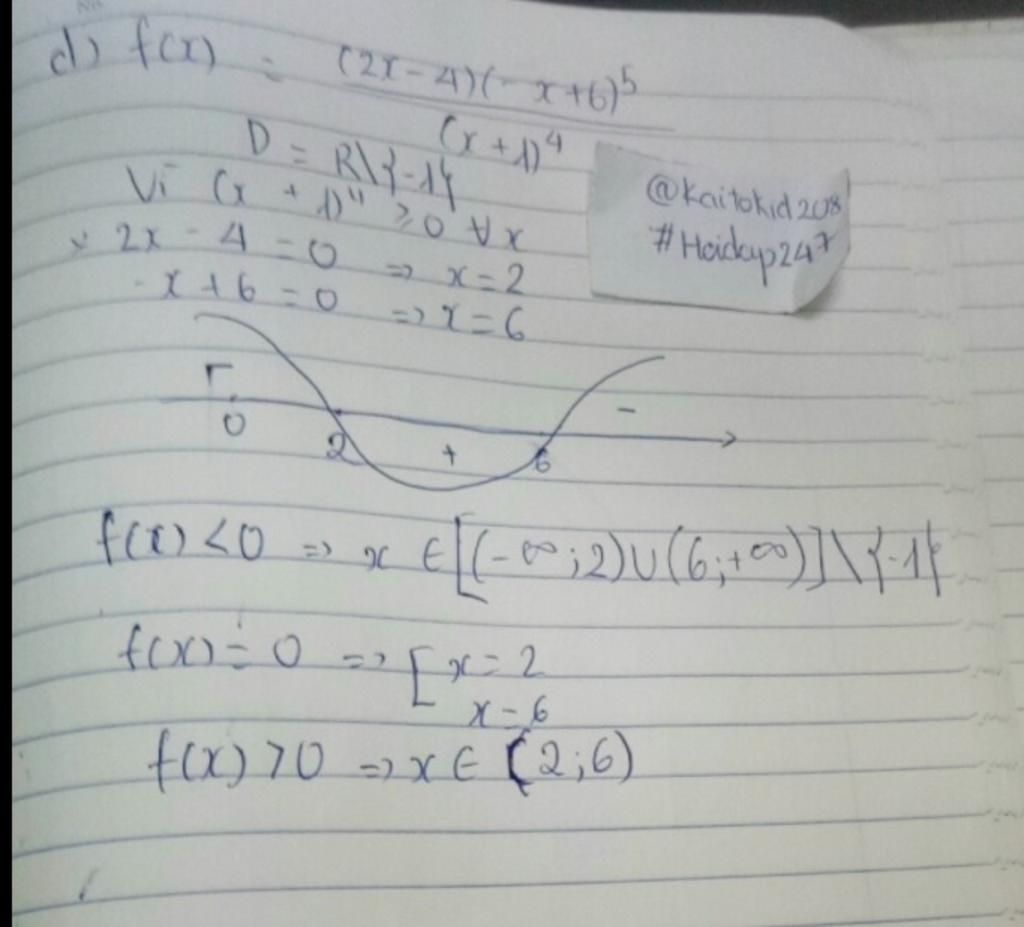 d) f(x) = (2x-4)(-x+6)^5
(x+1)^4
D = R\{-1}
Vì (x + 1)^4 ≥ 0 ∀x
2x - 4 = 0 => x = 2
-x + 6 = 0 => x = 6
@Kaitokid208
#Hoidap247
-
0 2 + 6
f(x) < 0 => x ∈ [(-∞;2)∪(6;+∞)]\{-1}
f(x) = 0 => [ x = 2
x = 6
f(x) > 0 => x ∈ (2;6)